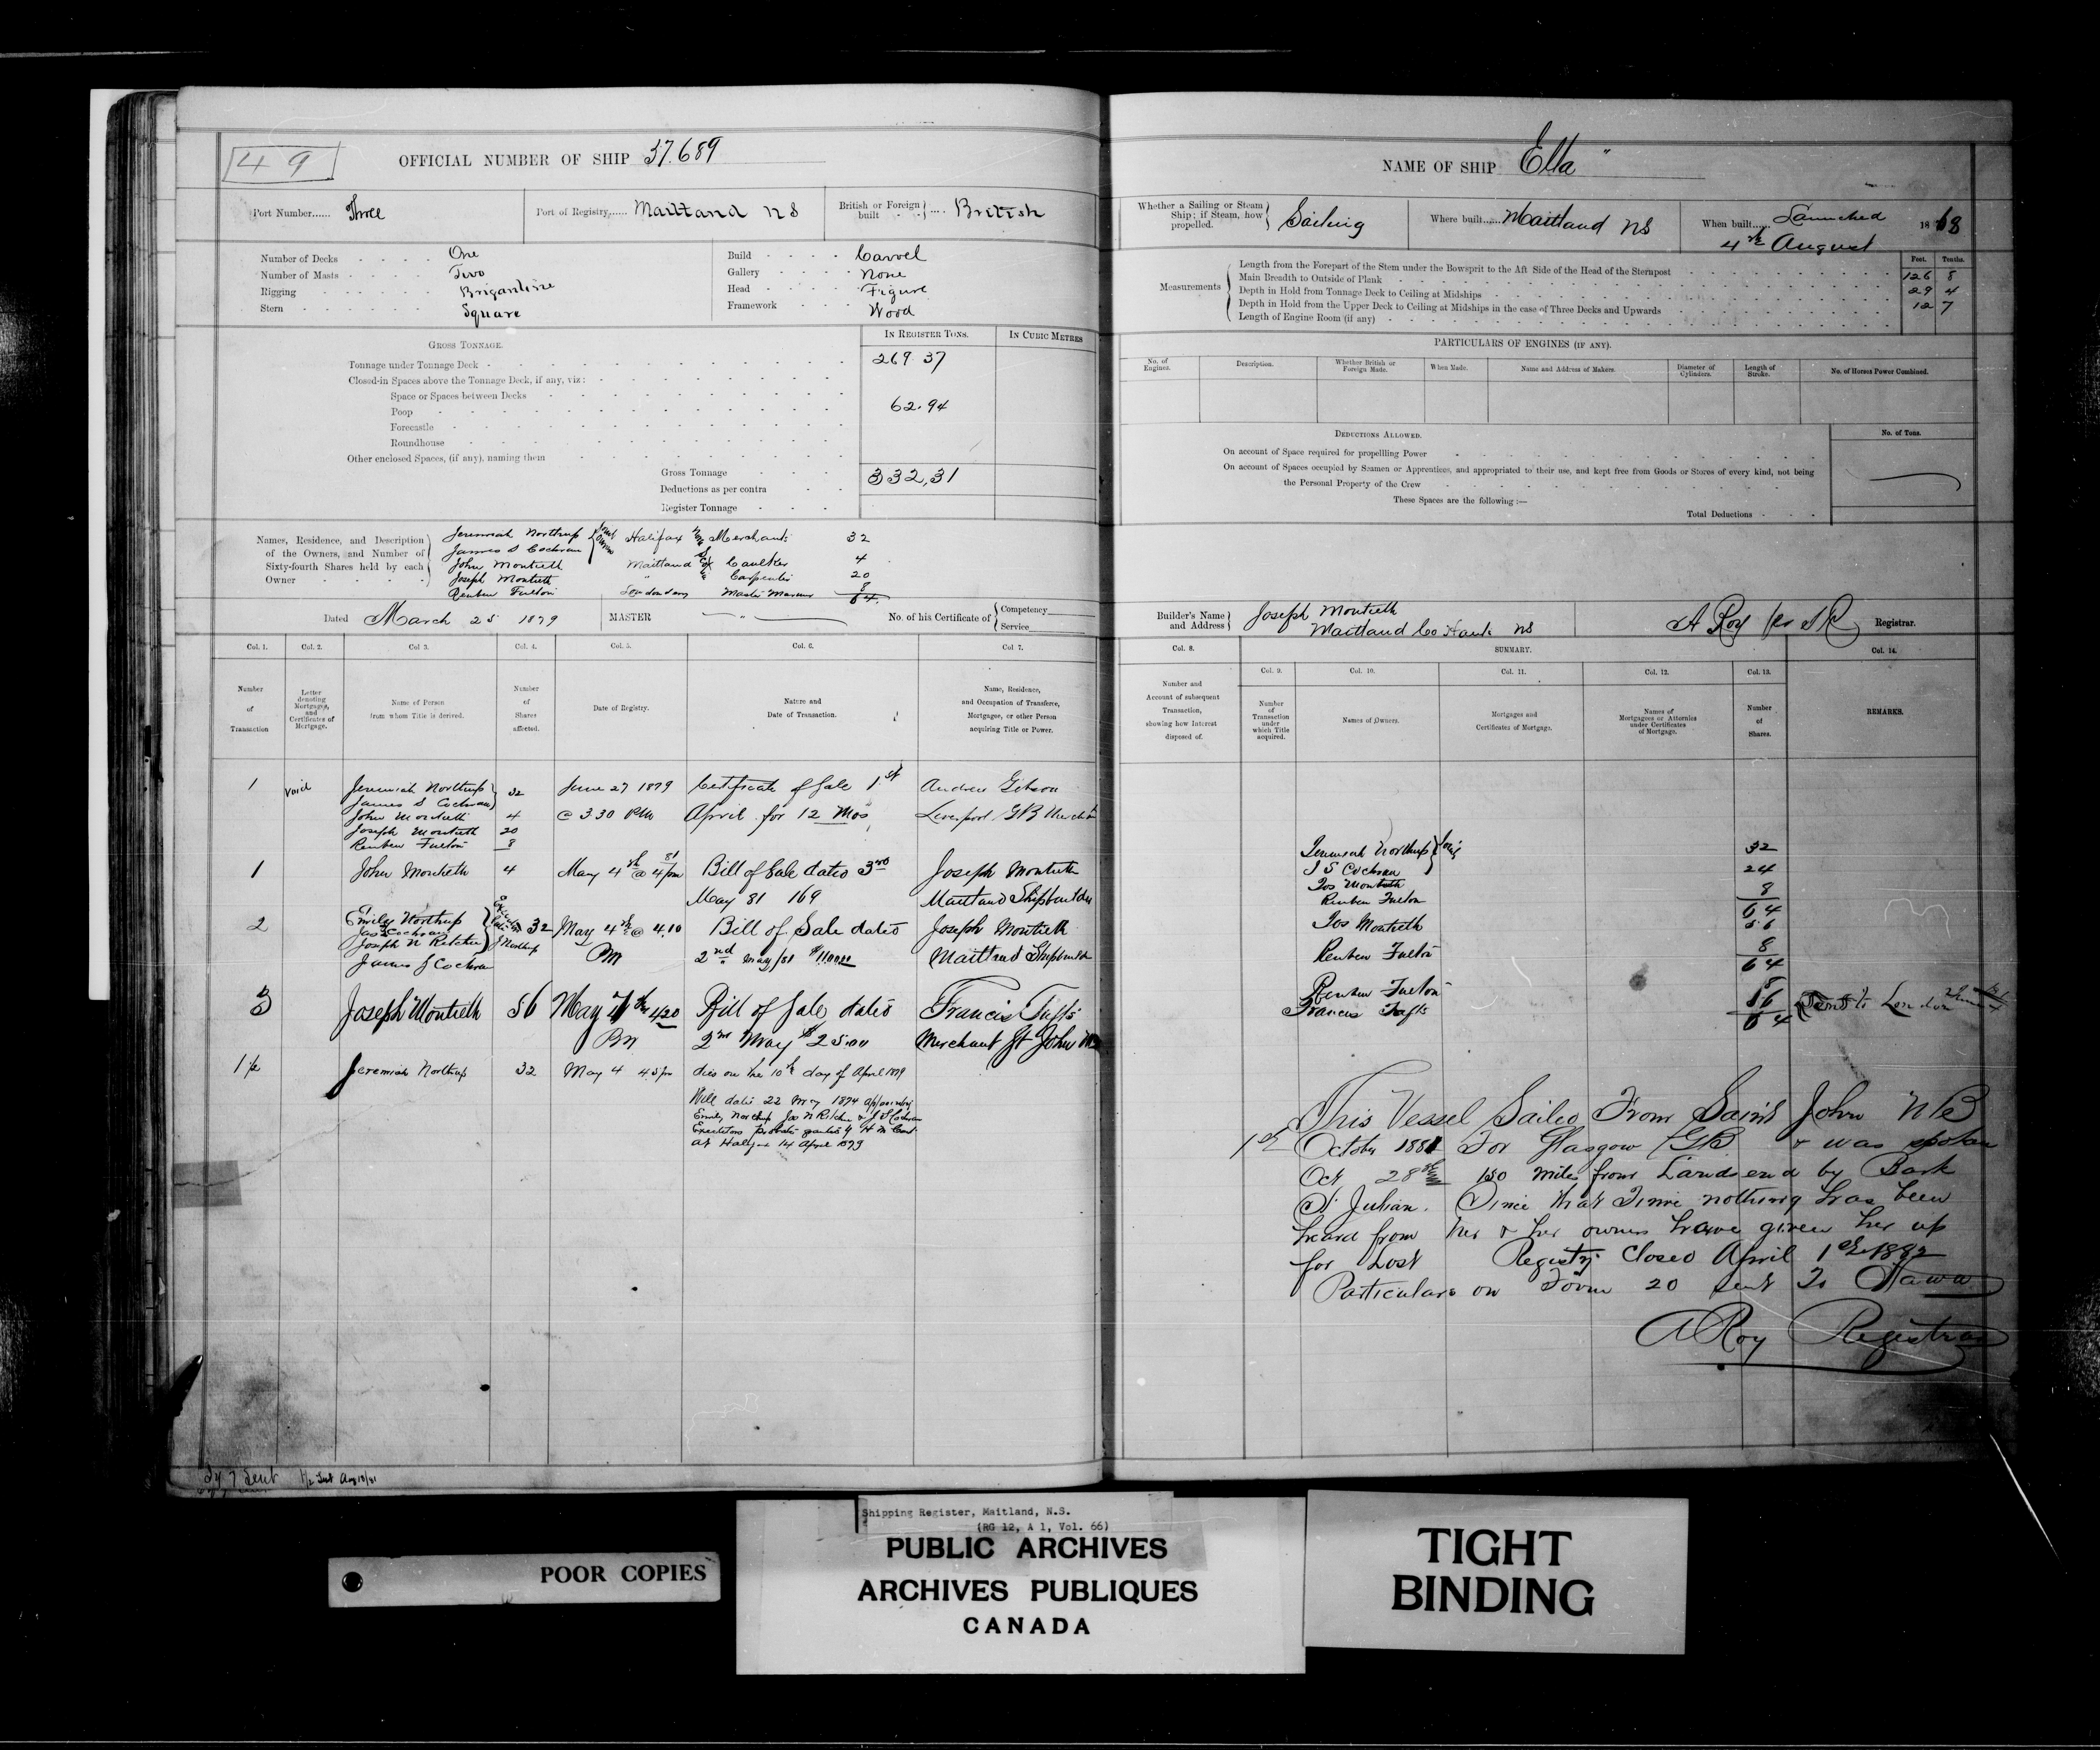 49
OFFICIAL NUMBER OF SHIP 37.689
Port Number...... Three
Port of Registry...... Maitland NS
British or Foreign built .... British
Number of Decks One
Number of Masts Two
Rigging Brigantine
Stern Square
Build Carvel
Gallery None
Head Figure
Framework Wood
GROSS TONNAGE.
IN REGISTER TONS.
IN CUBIC METRES
Tonnage under Tonnage Deck 269.37
Closed-in Spaces above the Tonnage Deck, if any, viz:
Space or Spaces between Decks
Poop 62.94
Forecastle
Roundhouse
Other enclosed Spaces, (if any), naming them
Gross Tonnage 332,31
Deductions as per contra
Register Tonnage
Names, Residence, and Description of the Owners, and Number of Sixty-fourth Shares held by each Owner
Jeremiah Northup Joint Owners Halifax Merchants 32
James S Cochran
John Montieth Maitland Caulker 4
Joseph Montieth " Carpenter 20
Reuben Fulton Londonderry Master Mariner 8
64
Dated March 25 1879
MASTER
No. of his Certificate of Competency Service
Col. 1.
Col. 2.
Col 3.
Col. 4.
Col. 5.
Col. 6.
Col 7.
Number of Transaction
Letter denoting Mortgages, and Certificates of Mortgage.
Name of Person from whom Title is derived.
Number of Shares affected.
Date of Registry.
Nature and Date of Transaction.
Name, Residence, and Occupation of Transferee, Mortgagee, or other Person acquiring Title or Power.
1 void Jeremiah Northup 32 June 27 1879 Certificate of Sale 1st Andrew Gibson
James S Cochran
John Montieth 4 @ 3 30 PM April for 12 Mos Liverpool GB Merchant
Joseph Montieth 20
Reuben Fulton 8
1 John Montieth 4 May 4th 81 @ 4 pm Bill of Sale dated 3rd Joseph Montieth
May 81 169 Maitland Shipbuilder
2 Emily Northup 32 May 4th @ 4.10 Bill of Sale dated Joseph Montieth
Jas S Cochran
Joseph N Ritchie J Northup PM 2nd May/81 Maitland Shipbuilder
James S Cochran
3 Joseph Montieth 56 May 4th 4 20 Bill of Sale dated Francis Tufts
PM 2nd May Merchant St John NB
1½ Jeremiah Northup 32 May 4 4.5 pm died on the 10th day of April 1879
Will dated 22 May 1874 appointing
Emily Northup Jos N Ritchie & J S Cochran
Executors probate granted by H M Court
at Halifax 14 April 1879
7 Sent ½ Sent Aug 18/81
NAME OF SHIP Ella "
Whether a Sailing or Steam Ship; if Steam, how propelled. Sailing
Where built...... Maitland NS
When built..... Launched 4th August 1868
Measurements
Feet. Tenths.
Length from the Forepart of the Stem under the Bowsprit to the Aft Side of the Head of the Sternpost 126 8
Main Breadth to Outside of Plank 29 4
Depth in Hold from Tonnage Deck to Ceiling at Midships 12 7
Depth in Hold from the Upper Deck to Ceiling at Midships in the case of Three Decks and Upwards
Length of Engine Room (if any)
PARTICULARS OF ENGINES (IF ANY).
No. of Engines.
Description.
Whether British or Foreign Made.
When Made.
Name and Address of Makers.
Diameter of Cylinders.
Length of Stroke.
No. of Horses Power Combined.
DEDUCTIONS ALLOWED.
No. of Tons.
On account of Space required for propelling Power
On account of Spaces occupied by Seamen or Apprentices, and appropriated to their use, and kept free from Goods or Stores of every kind, not being
the Personal Property of the Crew
These Spaces are the following:—
Total Deductions
Builder's Name and Address Joseph Montieth
Maitland Co Hants NS
A Roy Registrar.
Col. 8.
SUMMARY.
Col. 14.
Col. 9.
Col. 10.
Col. 11.
Col. 12.
Col. 13.
Number and Account of subsequent Transaction, showing how Interest disposed of.
Number of Transaction under which Title acquired.
Names of Owners.
Mortgages and Certificates of Mortgage.
Names of Mortgagees or Attornies under Certificates of Mortgage.
Number of Shares.
REMARKS.
Jeremiah Northup Joint 32
J S Cochran
Jos Montieth 24
Reuben Fulton 8
64
Jos Montieth 56
Reuben Fulton 8
64
Reuben Fulton 8
Francis Tufts 56
64
Sent to London
This Vessel Sailed From Saint John NB
1st October 1881 For Glasgow GB & was spoken
Oct 28th 150 miles from Landsend by Bark
St Julian. Since that Time nothing has been
heard from her & her owners have given her up
for Lost Registry Closed April 1st 1882
Particulars on Form 20 sent To Ottawa
A Roy Registrar
Shipping Register, Maitland, N.S.
(RG 12, A 1, Vol. 66)
PUBLIC ARCHIVES
ARCHIVES PUBLIQUES
CANADA
POOR COPIES
TIGHT
BINDING